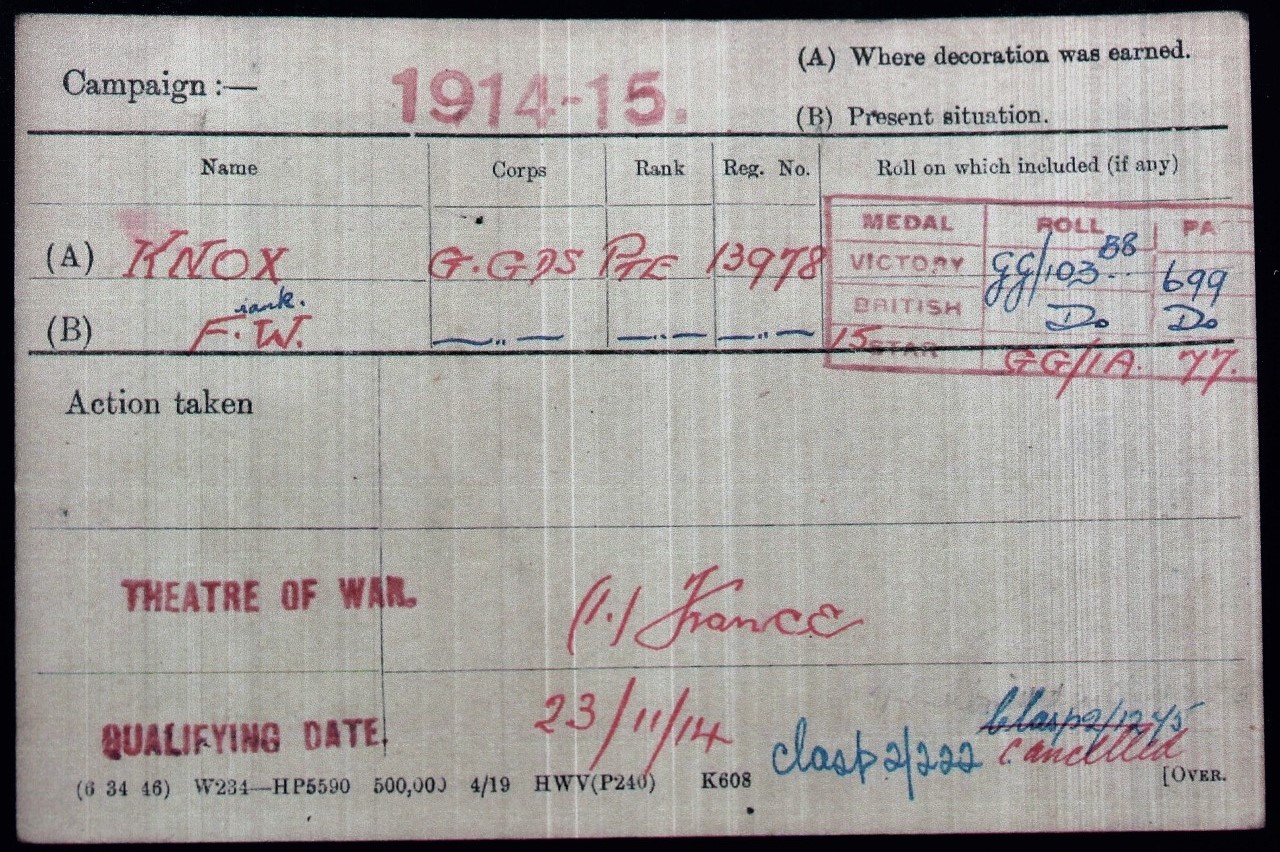 (A) Where decoration was earned.
Campaign :— 1914-15.
(B) Present situation.
Name Corps Rank Reg. No. Roll on which included (if any)
MEDAL ROLL PA
(A) KNOX G.GDS Pte 13978 VICTORY GG/103 BB 699
(B) F.W. —"— —"— —"— BRITISH Do Do
15 STAR GG/1A. 77.
Action taken
THEATRE OF WAR. (1.) France
QUALIFYING DATE 23/11/14 clasp 2/222 cancelled
(6 34 46) W234—HP5590 500,000 4/19 HWV(P240) K608 [OVER.